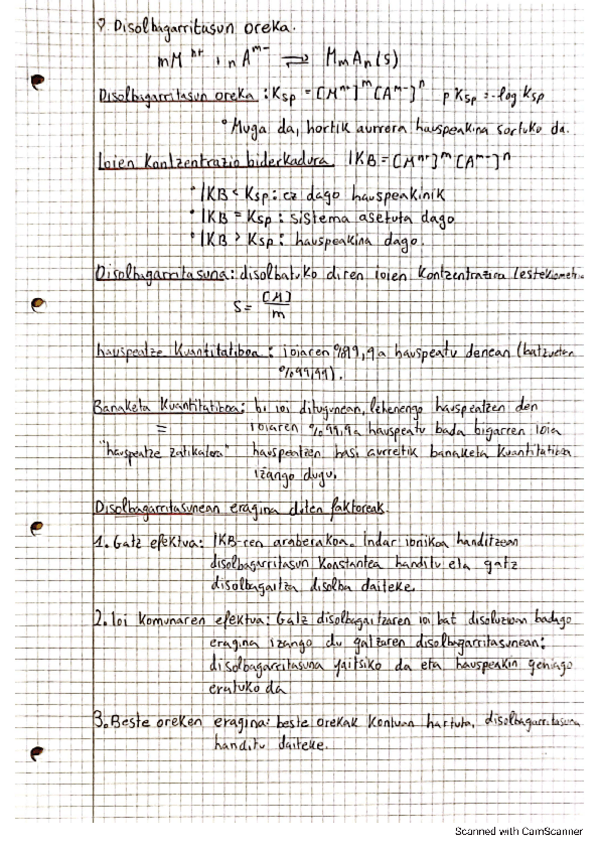 Disolbagarritasun oreka.
mM^n+ + nA^m- ⇌ MmAn(s)
Disolbagarritasun oreka : Ksp = [M^n+]^m [A^m-]^n pKsp = -log Ksp
° Muga da, hortik aurrera hauspeakina sortuko da.
Ioien Kontzentrazio biderkadura IKB = [M^n+]^m [A^m-]^n
° IKB < Ksp : ez dago hauspeakinik
° IKB = Ksp : sistema asetuta dago
° IKB > Ksp : hauspeakina dago.
Disolbagarritasuna : disolbatuko diren ioien kontzentrazioa (estekiometr..
S = [M]/m
hauspeatze Kuantitatiboa : ioiaren %99,9a hauspeatu denean (batzuetan
%99,99).
Banaketa Kuantitatiboa : bi ioi ditugunean, lehenengo hauspeatzen den
= ioiaren %99,9a hauspeatu bada bigarren ioia
"hauspeatze zatikatua" hauspeatzen hasi aurretik banaketa kuantitatiboa
izango dugu.
Disolbagarritasunean eragina duten faktoreak.
1. Gatz efektua : IKB-ren araberakoa. Indar ionikoa handitzean
disolbagarritasun konstantea handitu eta gatz
disolbagaitza disolba daiteke.
2. Ioi komunaren efektua : Gatz disolbagaitzaren ioi bat disoluzioan badago
eragina izango du gatzaren disolbagarritasunean;
disolbagarritasuna jaitsiko da eta hauspeakin gehiago
eratuko da
3. Beste oreken eragina : beste orekak kontuan hartuta, disolbagarritasuna
handitu daiteke.
Scanned with CamScanner